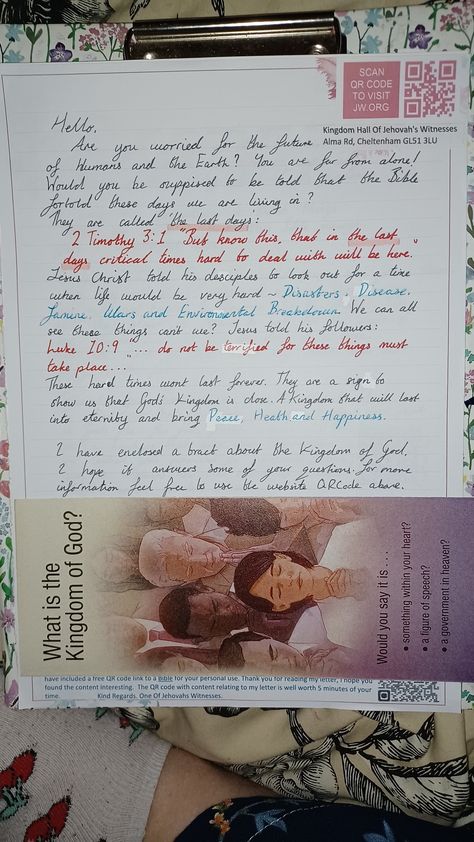 SCAN
QR CODE
TO VISIT
JW.ORG
Kingdom Hall Of Jehovah's Witnesses
Alma Rd, Cheltenham GL51 3LU
Hello,
Are you worried for the future
of Humans and the Earth? You are far from alone!
Would you be suppised to be told that the Bible
fortold these days we are living in?
They are called 'the last days':
2 Timothy 3:1 "But know this, that in the last
days critical times hard to deal with will be here."
Jesus Christ told his desciples to look out for a time
when life would be very hard ~ Disasters, Disease,
Famine, Wars and Environmental Breakdown. We can all
see these things can't we? Jesus told his followers:
Luke 10:9 "... do not be terrified for these things must
take place..."
These hard times wont last forever. They are a sign to
show us that God's Kingdom is close. A Kingdom that will last
into eternity and bring Peace, Health and Happiness.
I have enclosed a tract about the Kingdom of God.
I hope it answers some of your questions. For more
information feel free to use the website QRCode above.
What is the
Kingdom of God?
Would you say it is . . .
• something within your heart?
• a figure of speech?
• a government in heaven?
have included a free QR code link to a Bible for your personal use. Thank you for reading my letter, I hope you
found the content interesting. The QR code with content relating to my letter is well worth 5 minutes of your
time. Kind Regards. One Of Jehovahs Witnesses.